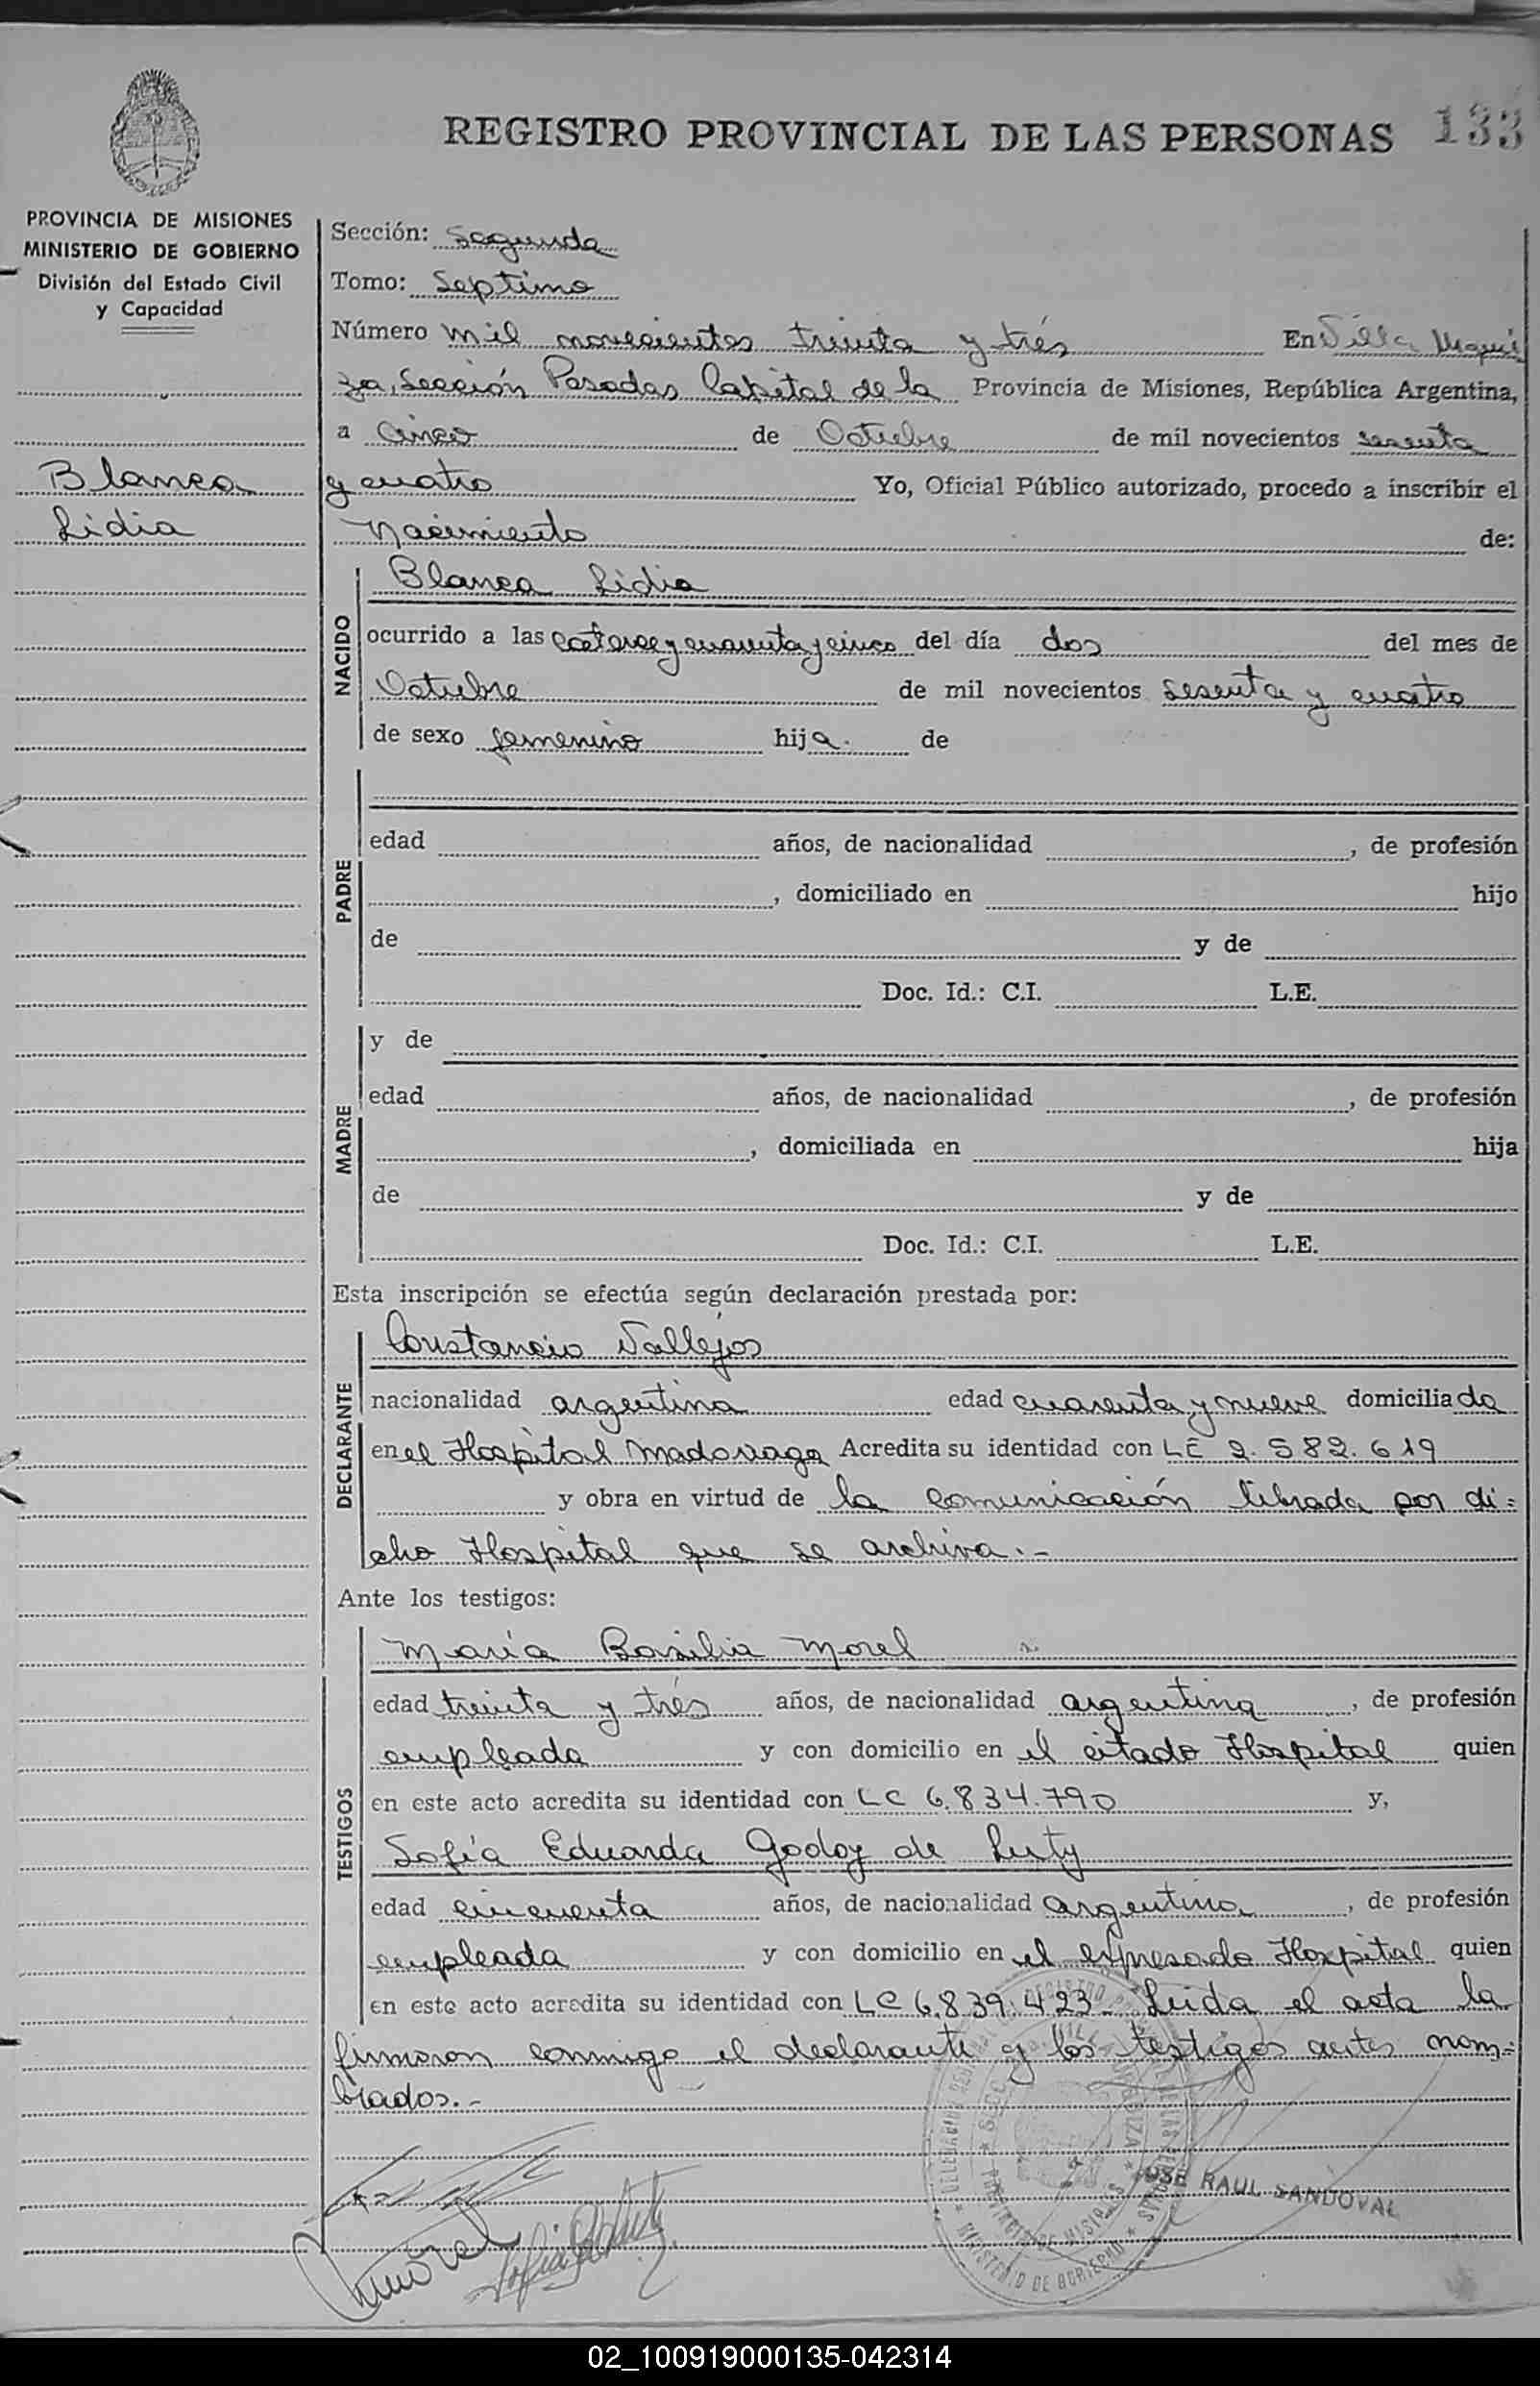 REGISTRO PROVINCIAL DE LAS PERSONAS 133
PROVINCIA DE MISIONES
MINISTERIO DE GOBIERNO
División del Estado Civil
y Capacidad
Blanca
Lidia
Sección: Segunda
Tomo: Septimo
Número mil novecientos treinta y trés En Villa Urqui
za, Sección Posadas Capital de la Provincia de Misiones, República Argentina,
a Cinco de Octubre de mil novecientos sesenta
y cuatro Yo, Oficial Público autorizado, procedo a inscribir el
Nacimiento de:
NACIDO
Blanca Lidia
ocurrido a las catorce y cuarenta y cinco del día dos del mes de
Octubre de mil novecientos sesenta y cuatro
de sexo femenino hija. de
PADRE
edad años, de nacionalidad , de profesión
, domiciliado en hijo
de y de
Doc. Id.: C.I. L.E.
MADRE
y de
edad años, de nacionalidad , de profesión
, domiciliada en hija
de y de
Doc. Id.: C.I. L.E.
Esta inscripción se efectúa según declaración prestada por:
DECLARANTE
Constancio Vallejos
nacionalidad argentina edad cuarenta y nueve domiciliado
en el Hospital Madariaga Acredita su identidad con LE 2.582.619
y obra en virtud de la comunicación librada por di=
cho Hospital que se archiva.-
Ante los testigos:
TESTIGOS
María Basilia Morel
edad treinta y trés años, de nacionalidad argentina , de profesión
empleada y con domicilio en el citado Hospital quien
en este acto acredita su identidad con LC 6.834.790 y,
Sofía Eduarda Godoy de Luty
edad cincuenta años, de nacionalidad argentina , de profesión
empleada y con domicilio en el expresado Hospital quien
en este acto acredita su identidad con LC 6.839.423- Leida el acta la
firmaron conmigo el declarante y los testigos antes nom=
brados.-
JOSE RAUL SANDOVAL
PROVINCIA DE MISIONES
MINISTERIO DE GOBIERNO
02_100919000135-042314